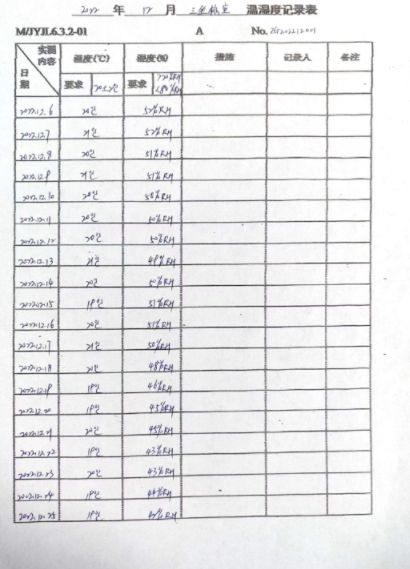 2022 年 12 月 三坐标室 温湿度记录表
M/JYJL6.3.2-01 A No.
日期 实测内容 温度(℃) 湿度(%) 措施 记录人 备注
要求 20±2℃ 要求
2022.12.6 20℃ 52%RH
2022.12.7 21℃ 52%RH
2022.12.8 20℃ 51%RH
2022.12.9 21℃ 51%RH
2022.12.10 20℃ 50%RH
2022.12.11 20℃ 50%RH
2022.12.12 20℃ 50%RH
2022.12.13 21℃ 49%RH
2022.12.14 20℃ 50%RH
2022.12.15 19℃ 51%RH
2022.12.16 20℃ 51%RH
2022.12.17 21℃ 50%RH
2022.12.18 20℃ 48%RH
2022.12.19 19℃ 46%RH
2022.12.20 19℃ 45%RH
2022.12.21 20℃ 45%RH
2022.12.22 19℃ 43%RH
2022.12.23 20℃ 43%RH
2022.12.24 19℃ 44%RH
2022.12.25 19℃ 42%RH